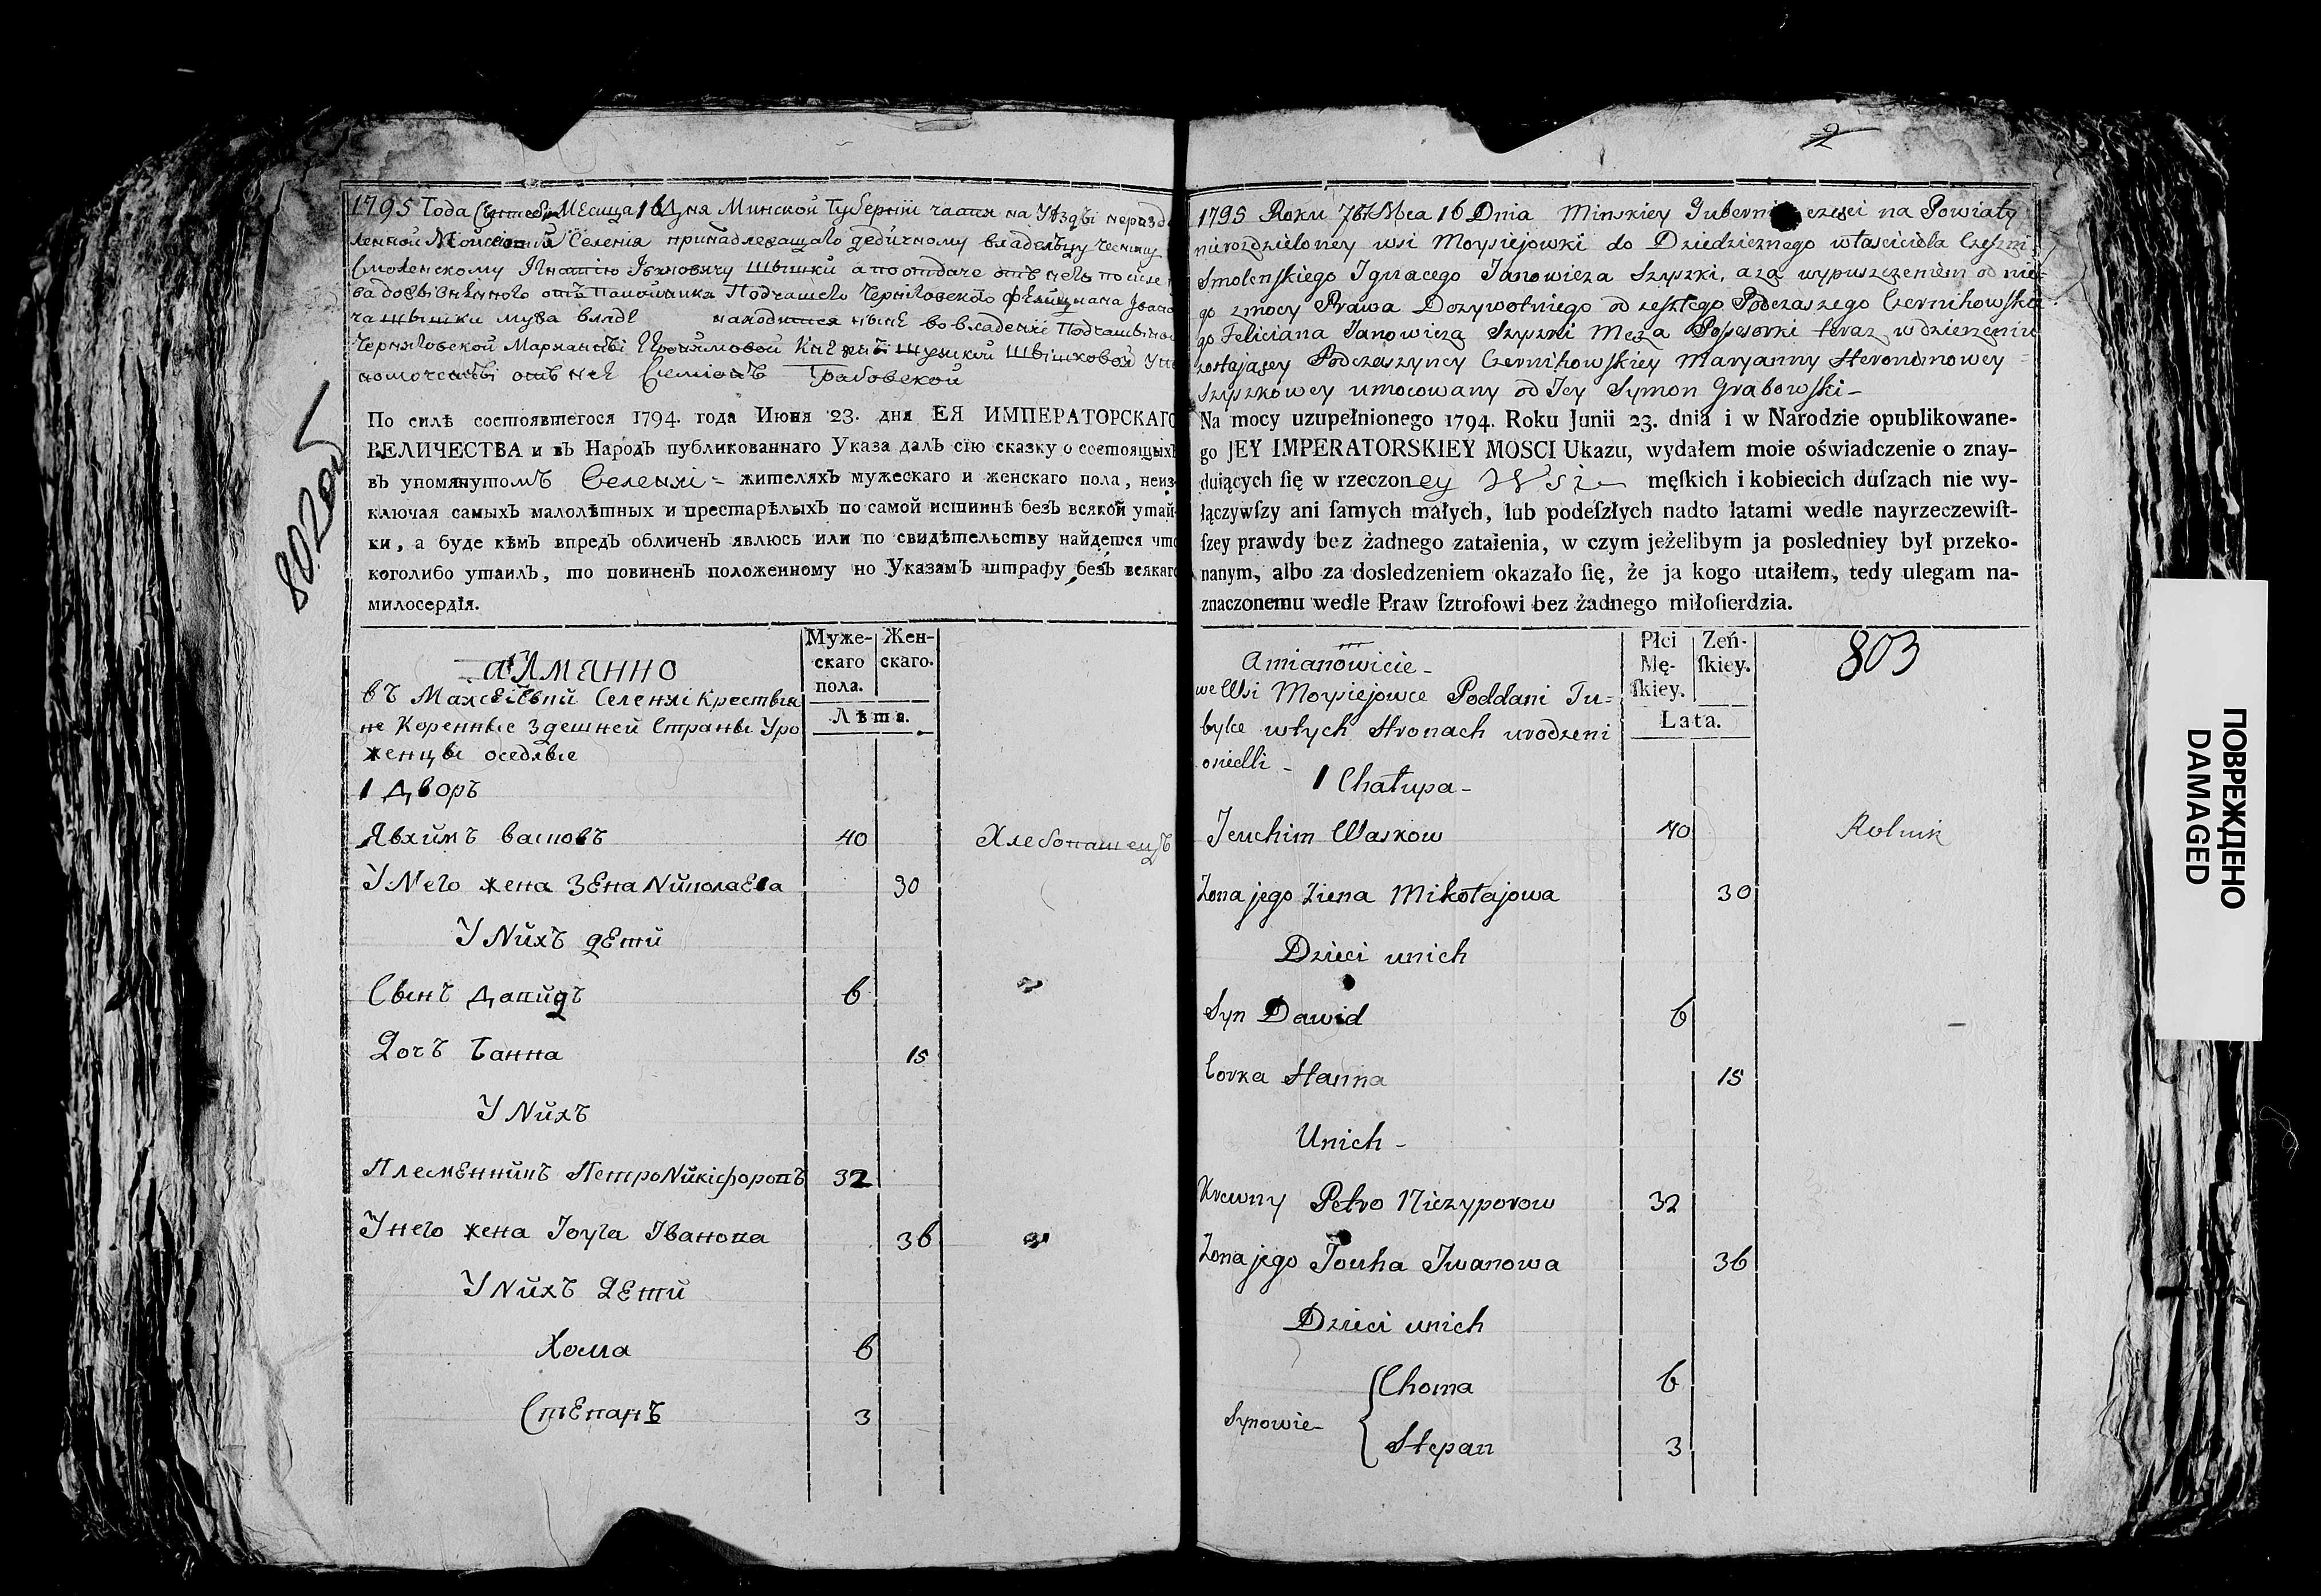 1795 Года Сентебр Месица 16 Дня Минской Губернии части на Уѣзды неразд
ленной Селенія принадлежащаго дедичному владельцу Чеснику
Смоленскому Игнатію Івановичу Шышки а по отдаче отъ него по силе
Подчашего Черниговского Фелициана
мужа находится ныне во владеніи
Черниговской Марианны
отъ нее Семіонъ Грабовской
По силѣ состоявшегося 1794. года Июня 23. дня ЕЯ ИМПЕРАТОРСКАГО
ВЕЛИЧЕСТВА и въ Народъ публикованнаго Указа далъ сїю сказку о состоящихъ
въ упомянутомъ Селеніи = жителяхъ мужескаго и женскаго пола, неиз-
ключая самыхъ малолѣтныхъ и престарѣлыхъ по самой истиннѣ безъ всякой утай-
ки, а буде кѣмъ впредъ обличенъ явлюсь или по свидѣтельству найдется что
коголибо утаилъ, то повиненъ положенному по Указамъ штрафу безъ всякаго
милосердїя.
802 об
Муже-
скаго
пола.
Жен-
скаго.
Лѣта.
аИмянно
въ Селеніи Крестьия
не Коренные Здешней Страны Уро
женцы оседлые
1 Дворъ
Явхимъ Васковъ 40 Хлебопашецъ
У Него жена Зена Николаева 30
У Нихъ дети
Сынъ Давидъ 6
Дочъ Ганна 15
У Нихъ
Племенникъ Петро Никіфоровъ 32
У него жена Іоуга Іванова 36
У Нихъ Дети
Хома 6
Степанъ 3
2
1795 Roku 7br Mca 16 Dnia Minskiey Guberni części na Powiaty
nierozdzieloney wsi Moysiejowki do Dziedzicznego własciciela Czesni
Smolenskiego Ignacego Janowicza Szyszki, a za wypuszczeniem od nie
go z mocy Prawa Dozywotniego od zeszłego Podczaszego Czernihowskie
go Feliciana Janowicza Szyszki Męża Possesorki teraz w dzierzeniu
zostającey Podczaszyncy Czernihowskiey Maryanny Heronimowey =
Szyszkowey umocowany od Jey Symon Grabowski –
Na mocy uzupełnionego 1794. Roku Junii 23. dnia i w Narodzie opublikowane-
go JEY IMPERATORSKIEY MOSCI Ukazu, wydałem moie oświadczenie o znay-
duiących ſię w rzeczoney Wsi męſkich i kobiecich duſzach nie wy-
łączywſzy ani ſamych małych, lub podeſzłych nadto latami wedle nayrzeczewiſt-
ſzey prawdy bez żadnego zataienia, w czym jeżelibym ja posledniey był przeko-
nanym, albo za dosledzeniem okazało ſię, że ja kogo utaiłem, tedy ulegam na-
znaczonemu wedle Praw ſztrofowi bez żadnego miłoſierdzia.
Płci
Mę-
ſkiey.
Zeń-
ſkiey.
Lata.
803
Amianowicie –
we Wsi Moysiejowce Poddani Tu=
bylce w tych Stronach urodzeni
osiedli –
1 Chałupa –
Jeuchim Waskow 40 Rolnik
Żona jego Ziena Mikołajowa 30
Dzieci u nich
Syn Dawid 6
Corka Hanna 15
U nich –
Krewny Petro Niczyporow 32
Żona jego Jouha Iwanowa 36
Dzieci u nich
Synowie – { Choma 6
Stepan 3
ПОВРЕЖДЕНО
DAMAGED